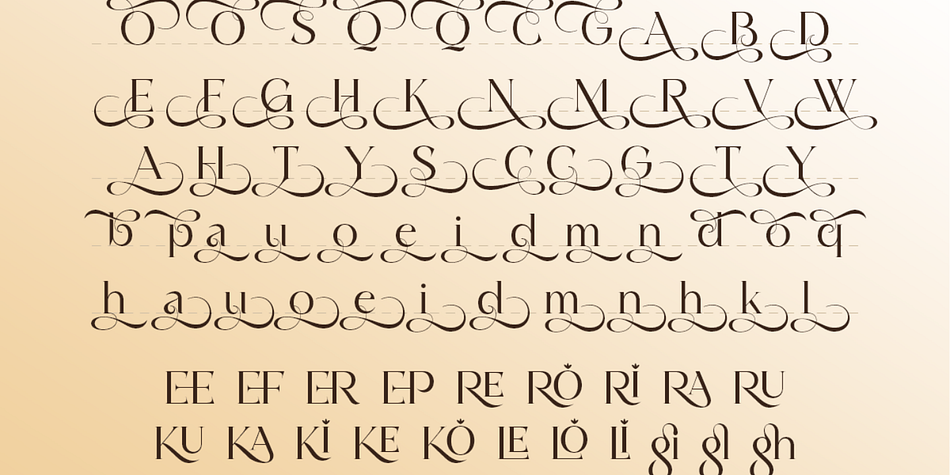 O O S Q Q C G A B D
E F G H K N M R V W
A H T Y S C C G T Y
b p a u o e i d m n d o q
h a u o e i d m n h k l
EE EF ER EP RE RO RI RA RU
KU KA KI KE KO LE LO LI gi gl gh